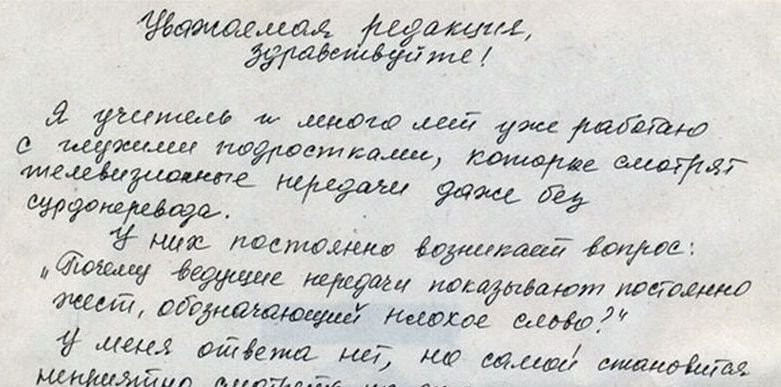 Уважаемая редакция,
здравствуйте!
Я учитель и много лет уже работаю
с глухими подростками, которые смотрят
телевизионные передачи даже без
сурдоперевода.
У них постоянно возникает вопрос:
„Почему ведущие передачи показывают постоянно
жест, обозначающий плохое слово?“
У меня ответа нет, но самой становится
неприятно смотреть на